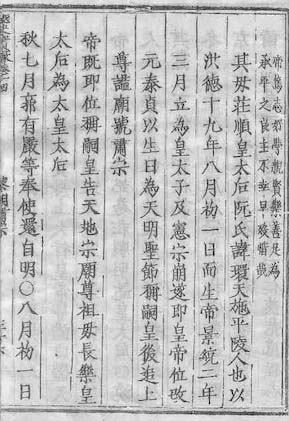 帝篤志好學親賢樂善足為
承平之良主不幸早殞惜哉
其母莊順皇太后阮氏諱環天施平陵人也以
洪德十九年八月初一日而生帝景統二年
三月立為皇太子及憲宗崩遂即皇帝位改
元泰貞以生日為天明聖節稱嗣皇後追上
尊謚廟號肅宗
帝既即位稱嗣皇告天地宗廟尊祖母長樂皇
太后為太皇太后
秋七月郭有嚴等奉使還自明○八月初一日